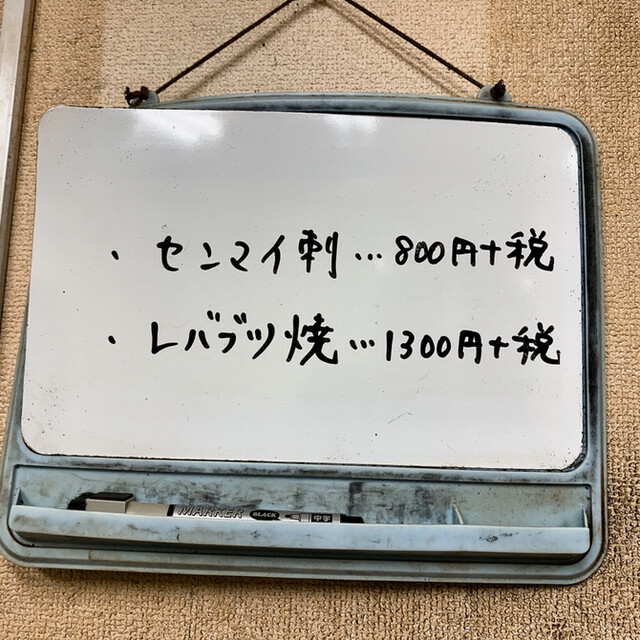 ・センマイ刺…800円+税
・レバブツ焼…1300円+税
MARKER BLACK 中字